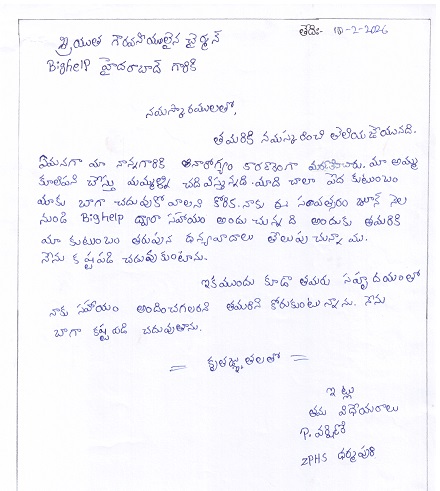 తేదీ:- 10-2-2026
శ్రీయుత గౌరవనీయులైన చైర్మన్
Bighelp హైదరాబాద్ గారికి
నమస్కారములతో,
తమరికి నమస్కరించి తెలియజేయునది.
ఏమనగా మా నాన్నగారికి అనారోగ్యం కారణంగా మా అమ్మ
కూలిపని చేస్తు మమ్మల్ని చదివిస్తున్నది. మాది చాలా పేద కుటుంబం
మాకు బాగా చదువుకోవాలని కోరిక. నాకు ఈ సంవత్సరం జూన్ నెల
నుండి Bighelp ద్వారా సహాయం అందుచున్నది అందుకు తమరికి
మా కుటుంబం తరుపున ధన్యవాదాలు తెలుపుచున్నాము.
నేను కష్టపడి చదువుకుంటాను.
ఇకముందు కూడా తమరు సహృదయంతో
నాకు సహాయం అందించగలరని తమరిని కోరుకుంటున్నాను. నేను
బాగా కష్టపడి చదువుతాను.
= కృతజ్ఞతలతో =
ఇట్లు
తమ విధేయరాలు
P.
ZPHS ధర్మపురి